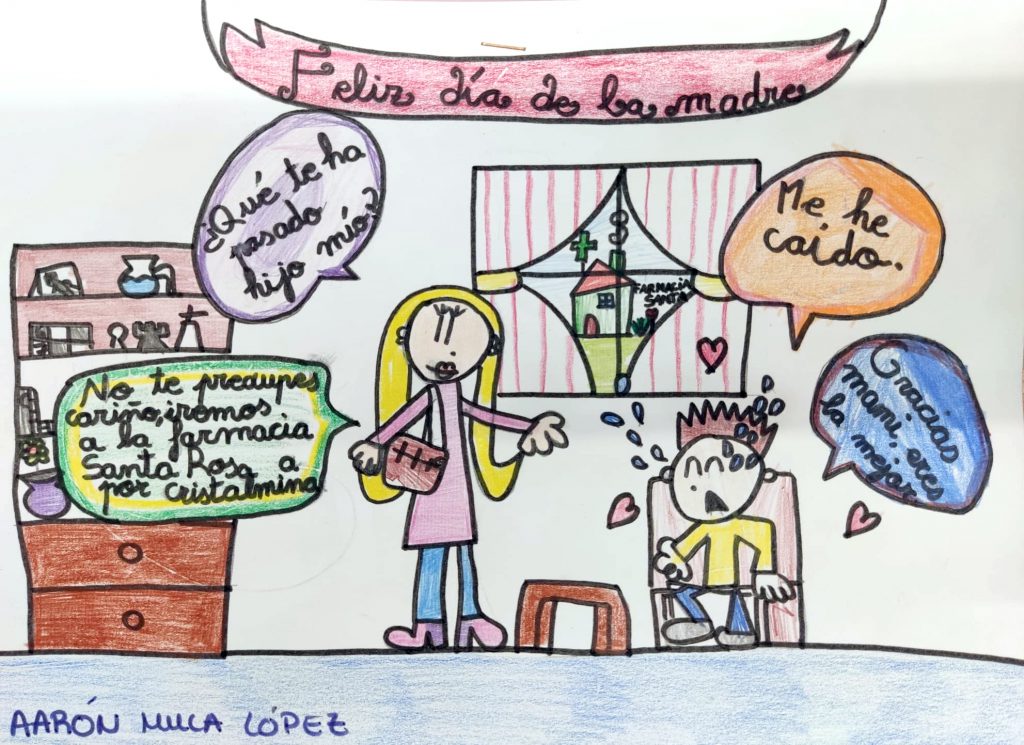 Feliz día de la madre
¿Qué te ha
pasado
hijo mío?
Me he
caído.
FARMACIA
SANTA
No te predupes
cariño, iremos
a la farmacia
Santa Rosa a
por cristalmina
Gracias
mami, eres
la mejor
AARÓN LÓPEZ